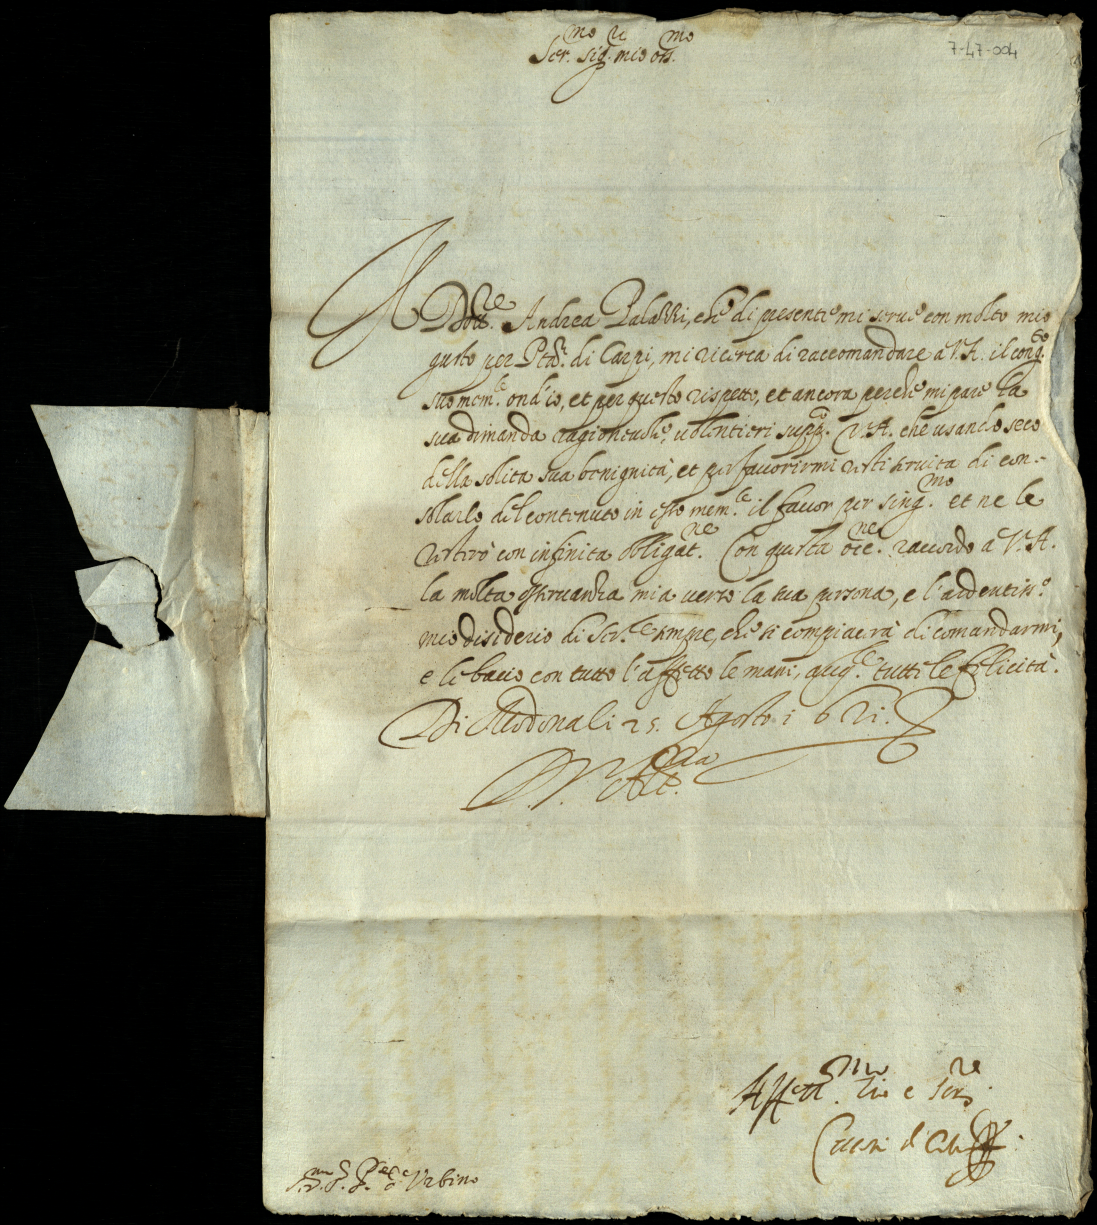 Ser.mo Sig.r mio oss.mo
7-47-004
Il Dott.re Andrea Palazzi, che di presente mi serve con molto mio
gusto per Ptà. di Carpi, mi ricerca di raccomandare a V.A. il cong.to
suo mem.le ond'io, et per questo rispetto, et ancora perche mi pare la
sua dimanda ragionevole, volentieri supp.co V.A. che usando seco
della solita sua benignità, et per favorirmi resti servita di con-
solarlo del contenuto in esso mem.le il favor per sing.mo et ne le
restirò con infinita obligat.ne Con questa occ.ne raccordo a V.A.
la molta osservanza mia verso la sua persona, e l'ardentiss.o
mio disiderio di Ser.le sempre, che si compiacerà di comandarmi,
e le bacio con tutto l'affetto le mani, aug.le tutte le felicità.
Di Modona li 25. Agosto 1621.
D. V. Alt.za
Affett.mo Zio e Ser.re
Cesare d'Este
S.r P.pe d'Urbino